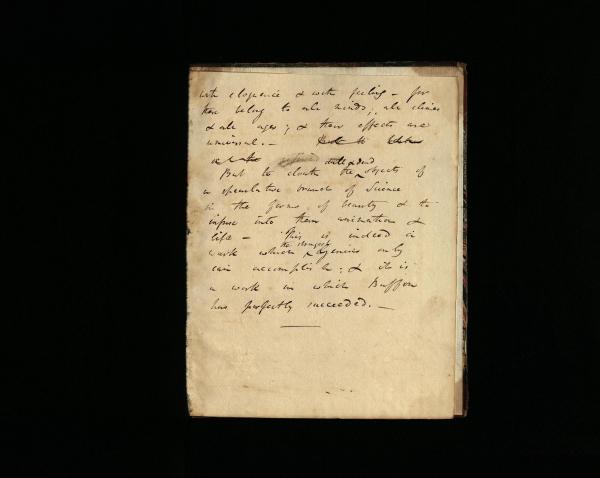 with eloquence & with feeling – for
these belong to all minds, all climes
& all ages; & their effects are
universal. – But to
dull & dead
But to clothe the objects of
a speculative branch of Science
in the forms of beauty & to
infuse into them animation &
life – This is indeed a
the strongest
work which genius only
can accomplish; & it is
a work in which Buffon
has perfectly succeeded. –